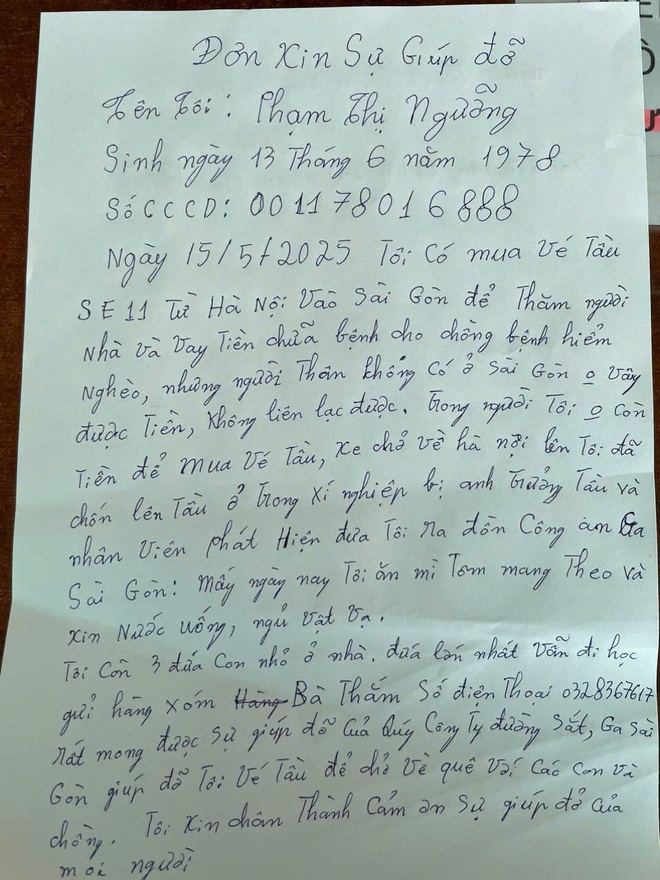 Đơn Xin Sự Giúp đỡ
Tên Tôi: Phạm Thị Ngưỡng
Sinh ngày 13 Tháng 6 năm 1978
Số CCCD: 001178016888
Ngày 15/5/2025 Tôi Có mua Vé Tầu
SE11 Từ Hà Nội Vào Sài Gòn để Thăm người
Nhà và Vay Tiền chữa bệnh cho chồng bệnh hiểm
Nghèo, nhưng người Thân không Có ở Sài Gòn o Vây
được Tiền, không liên lạc được. Trong người Tôi o Còn
Tiền để mua Vé Tầu, xe chở về hà nội lên Tôi đã
chốn lên Tầu ở Trong xí nghiệp bị anh Trưởng Tầu và
nhân Viên phát Hiện đưa Tôi ra đồn Công an Ga
Sài Gòn: Mấy ngày nay Tôi ăn mì Tôm mang Theo và
xin Nước uống, ngủ Vật Vạ.
Tôi Còn 3 đứa Con nhỏ ở nhà. đứa lớn nhất Vẫn đi học
gửi hàng xóm Bà Thắm Số điện Thoại 0328367617
rất mong được Sự giúp đỡ Của Quý Công Ty đường Sắt, Ga Sài
Gòn giúp đỡ Tôi Vé Tầu để chở Về quê Với Các Con và
chồng. Tôi Xin chân Thành Cảm ơn Sự giúp đỡ Của
mọi người